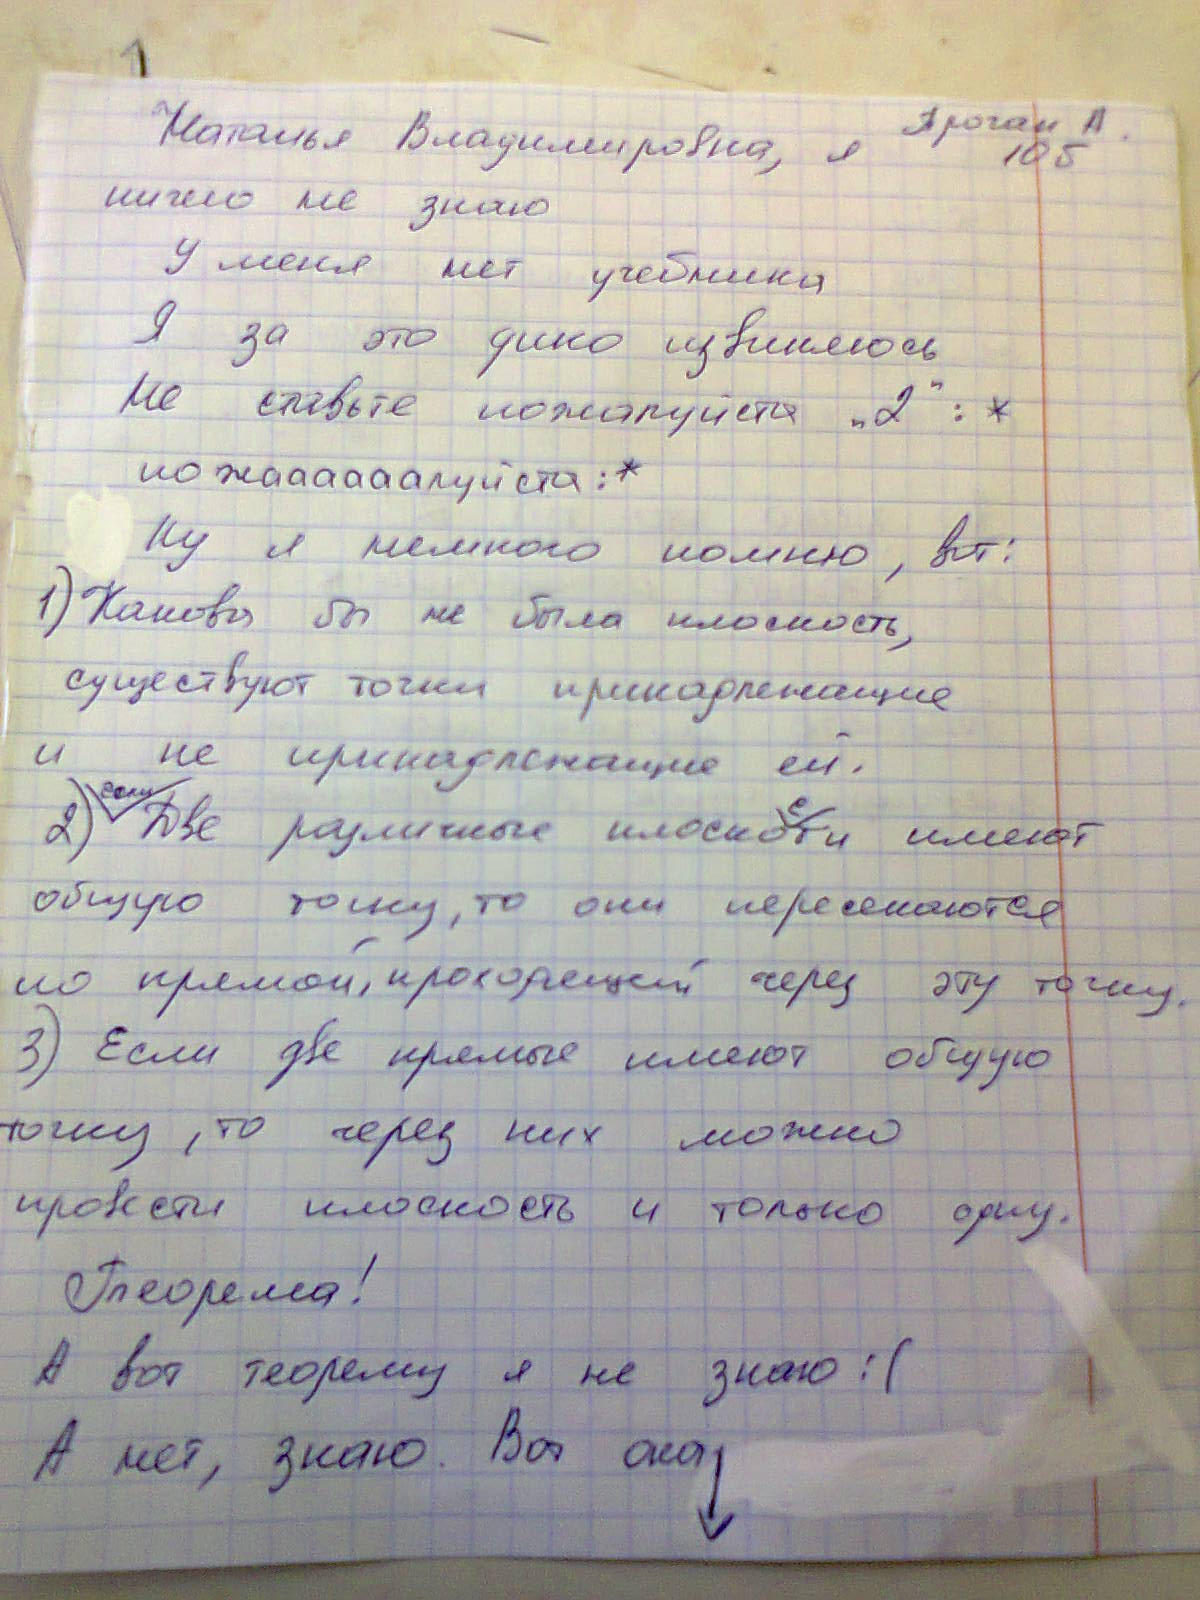 Наталья Владимировна, я
Ярочан А.
10 б
ничего не знаю
У меня нет учебника
Я за это дико извиняюсь
Не ставьте пожалуйста „2“ :*
пожааааааалуйста :*
Ну я немного помню, вот:
1) Какова бы не была плоскость,
существуют точки принадлежащие
и не принадлежащие ей.
если
2) Две различные плоскости имеют
общую точку, то они пересекаются
по прямой, проходящей через эту точку.
3) Если две прямые имеют общую
точку, то через них можно
провести плоскость и только одну.
Теорема!
А вот теорему я не знаю :(
А нет, знаю. Вот она